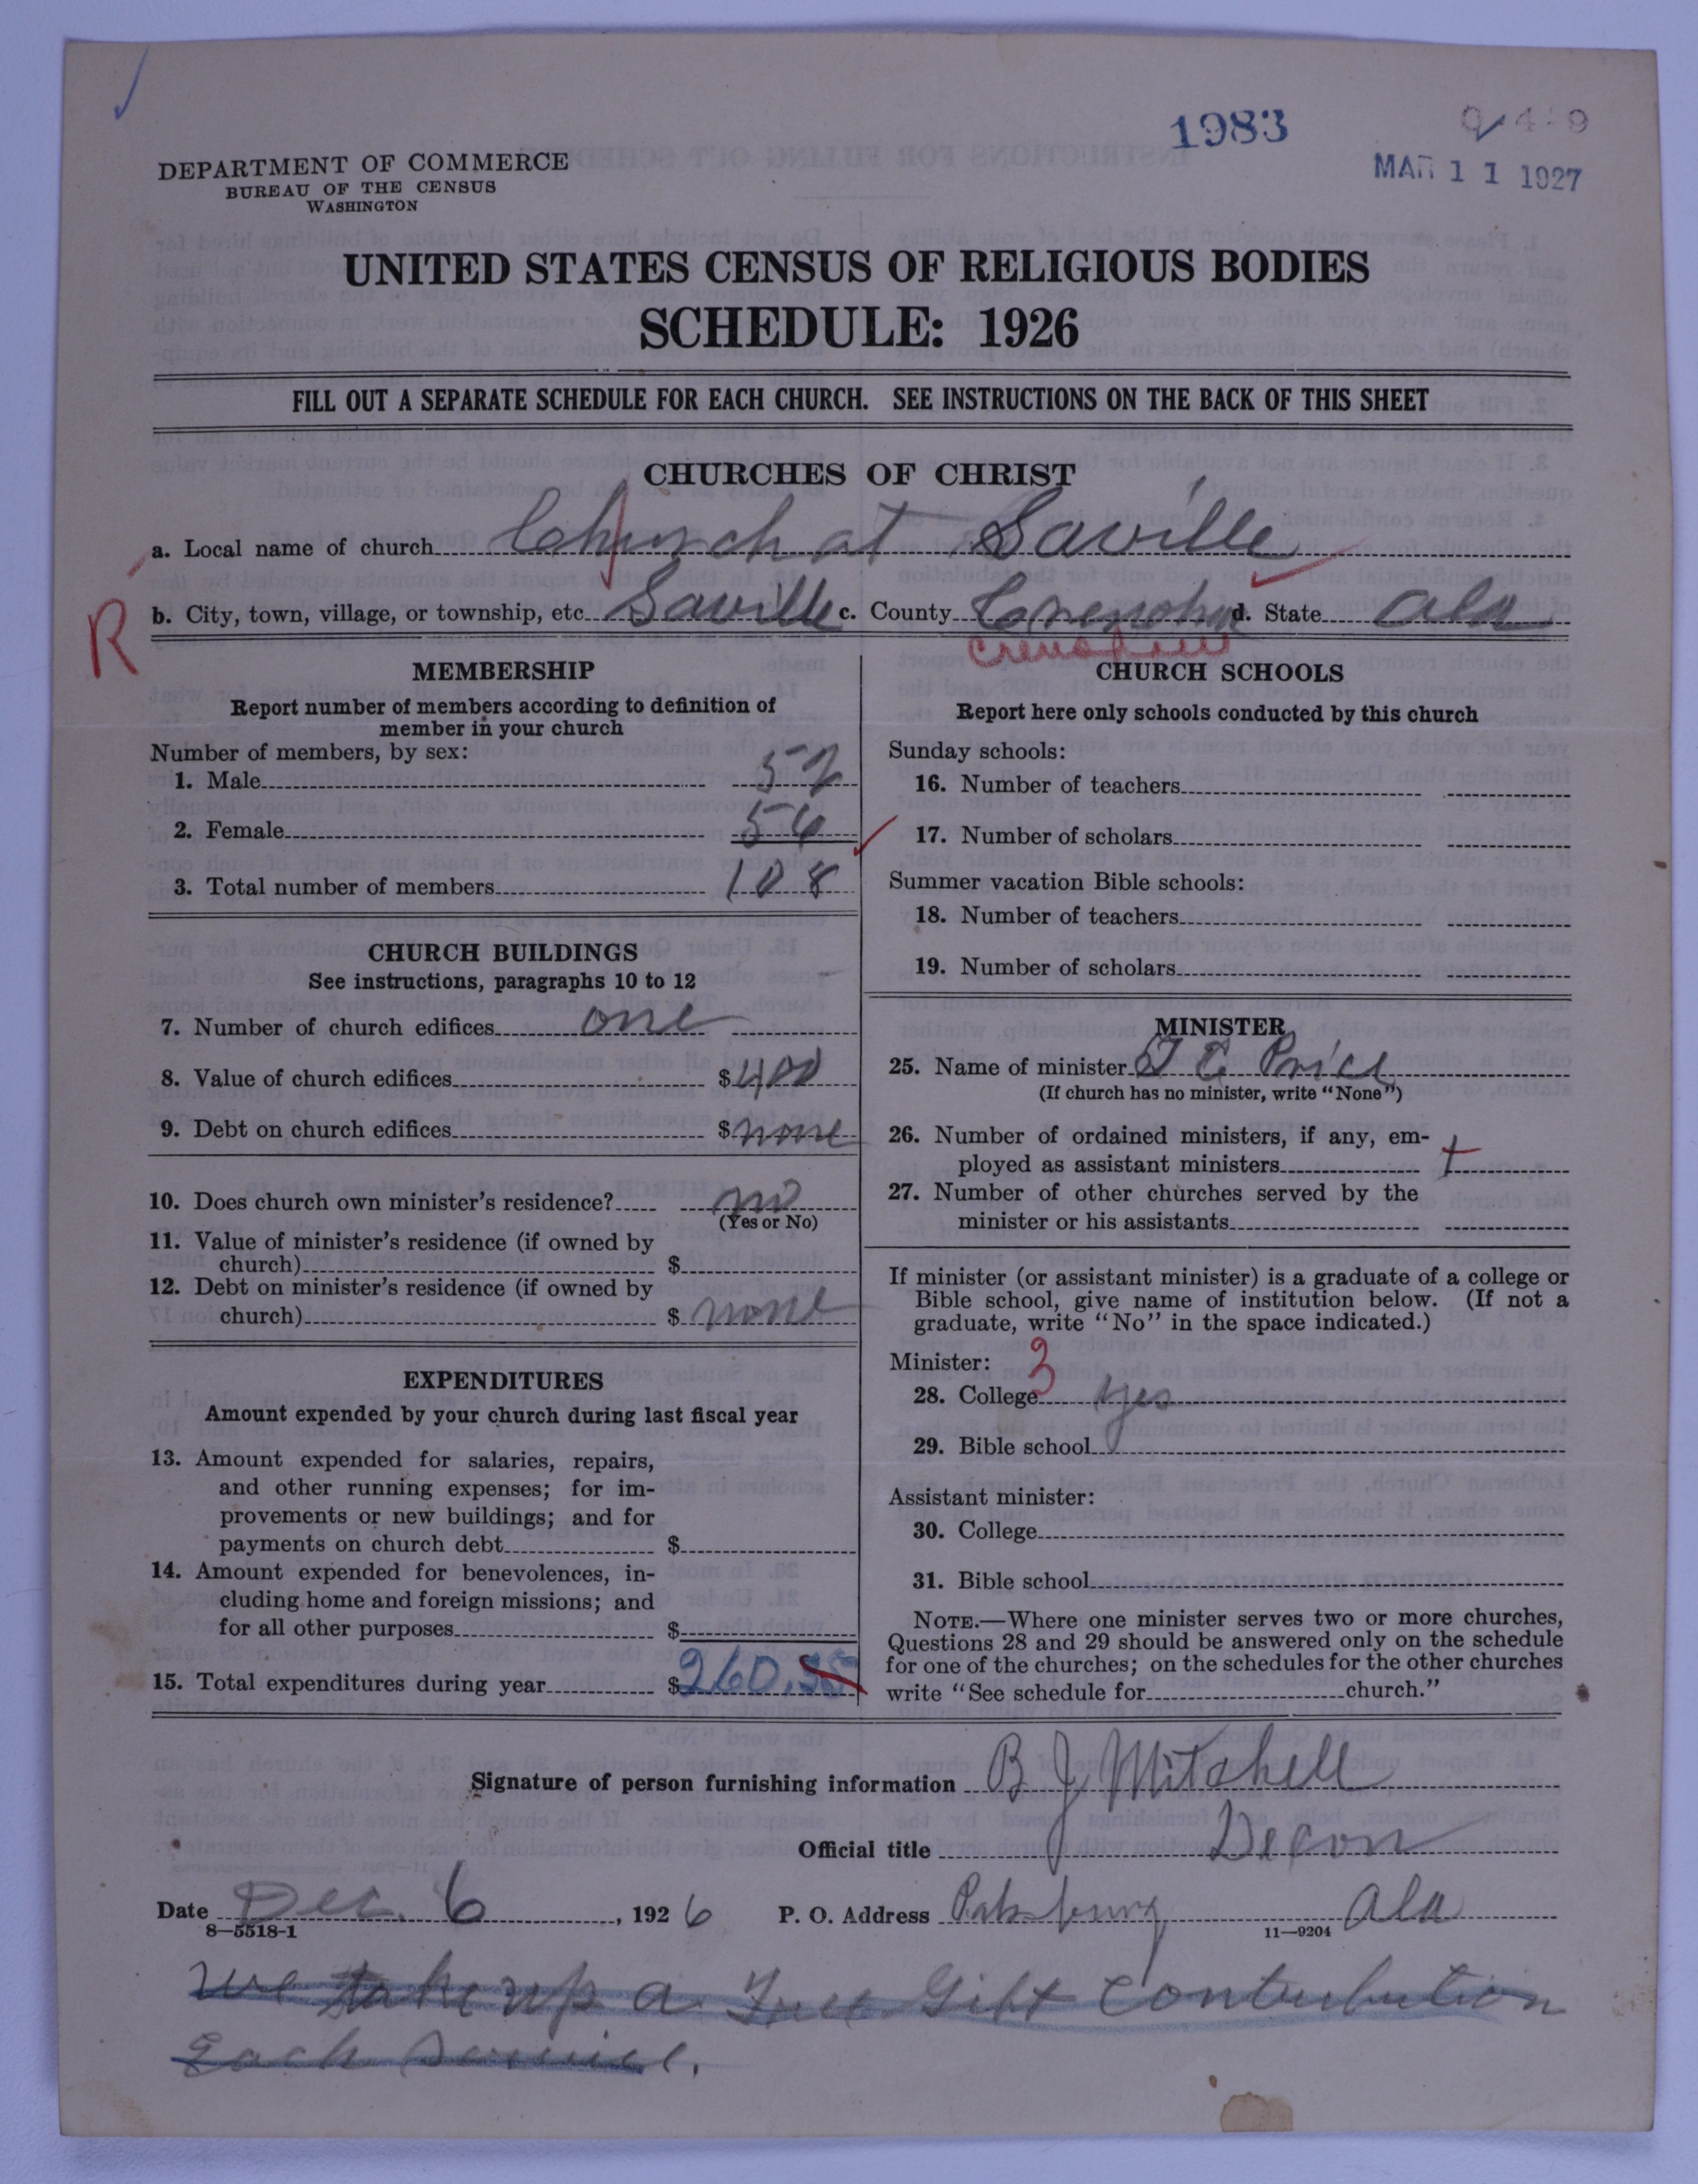 1983
9-4-9
MAR 11 1927
DEPARTMENT OF COMMERCE
BUREAU OF THE CENSUS
WASHINGTON
UNITED STATES CENSUS OF RELIGIOUS BODIES
SCHEDULE: 1926
FILL OUT A SEPARATE SCHEDULE FOR EACH CHURCH. SEE INSTRUCTIONS ON THE BACK OF THIS SHEET
CHURCHES OF CHRIST
a. Local name of church Church at Saville
b. City, town, village, or township, etc. Saville c. County d. State Ala
R
MEMBERSHIP
Report number of members according to definition of
member in your church
Number of members, by sex:
1. Male 52
2. Female 56
3. Total number of members 108
CHURCH BUILDINGS
See instructions, paragraphs 10 to 12
7. Number of church edifices one
8. Value of church edifices $400
9. Debt on church edifices $none
10. Does church own minister's residence? no
(Yes or No)
11. Value of minister's residence (if owned by
church) $
12. Debt on minister's residence (if owned by
church) $none
EXPENDITURES
Amount expended by your church during last fiscal year
13. Amount expended for salaries, repairs,
and other running expenses; for im-
provements or new buildings; and for
payments on church debt $
14. Amount expended for benevolences, in-
cluding home and foreign missions; and
for all other purposes $
15. Total expenditures during year $260.35
CHURCH SCHOOLS
Report here only schools conducted by this church
Sunday schools:
16. Number of teachers
17. Number of scholars
Summer vacation Bible schools:
18. Number of teachers
19. Number of scholars
MINISTER
25. Name of minister T C Price
(If church has no minister, write "None")
26. Number of ordained ministers, if any, em-
ployed as assistant ministers
27. Number of other churches served by the
minister or his assistants
If minister (or assistant minister) is a graduate of a college or
Bible school, give name of institution below. (If not a
graduate, write "No" in the space indicated.)
Minister: 3
28. College yes
29. Bible school
Assistant minister:
30. College
31. Bible school
NOTE.—Where one minister serves two or more churches,
Questions 28 and 29 should be answered only on the schedule
for one of the churches; on the schedules for the other churches
write "See schedule for church."
Signature of person furnishing information B J Mitchell
Official title Decon
Date Dec. 6, 1926 P. O. Address Ala
8—5518-1 11—9204
we take up a Free Gift Contribution
Each Service.